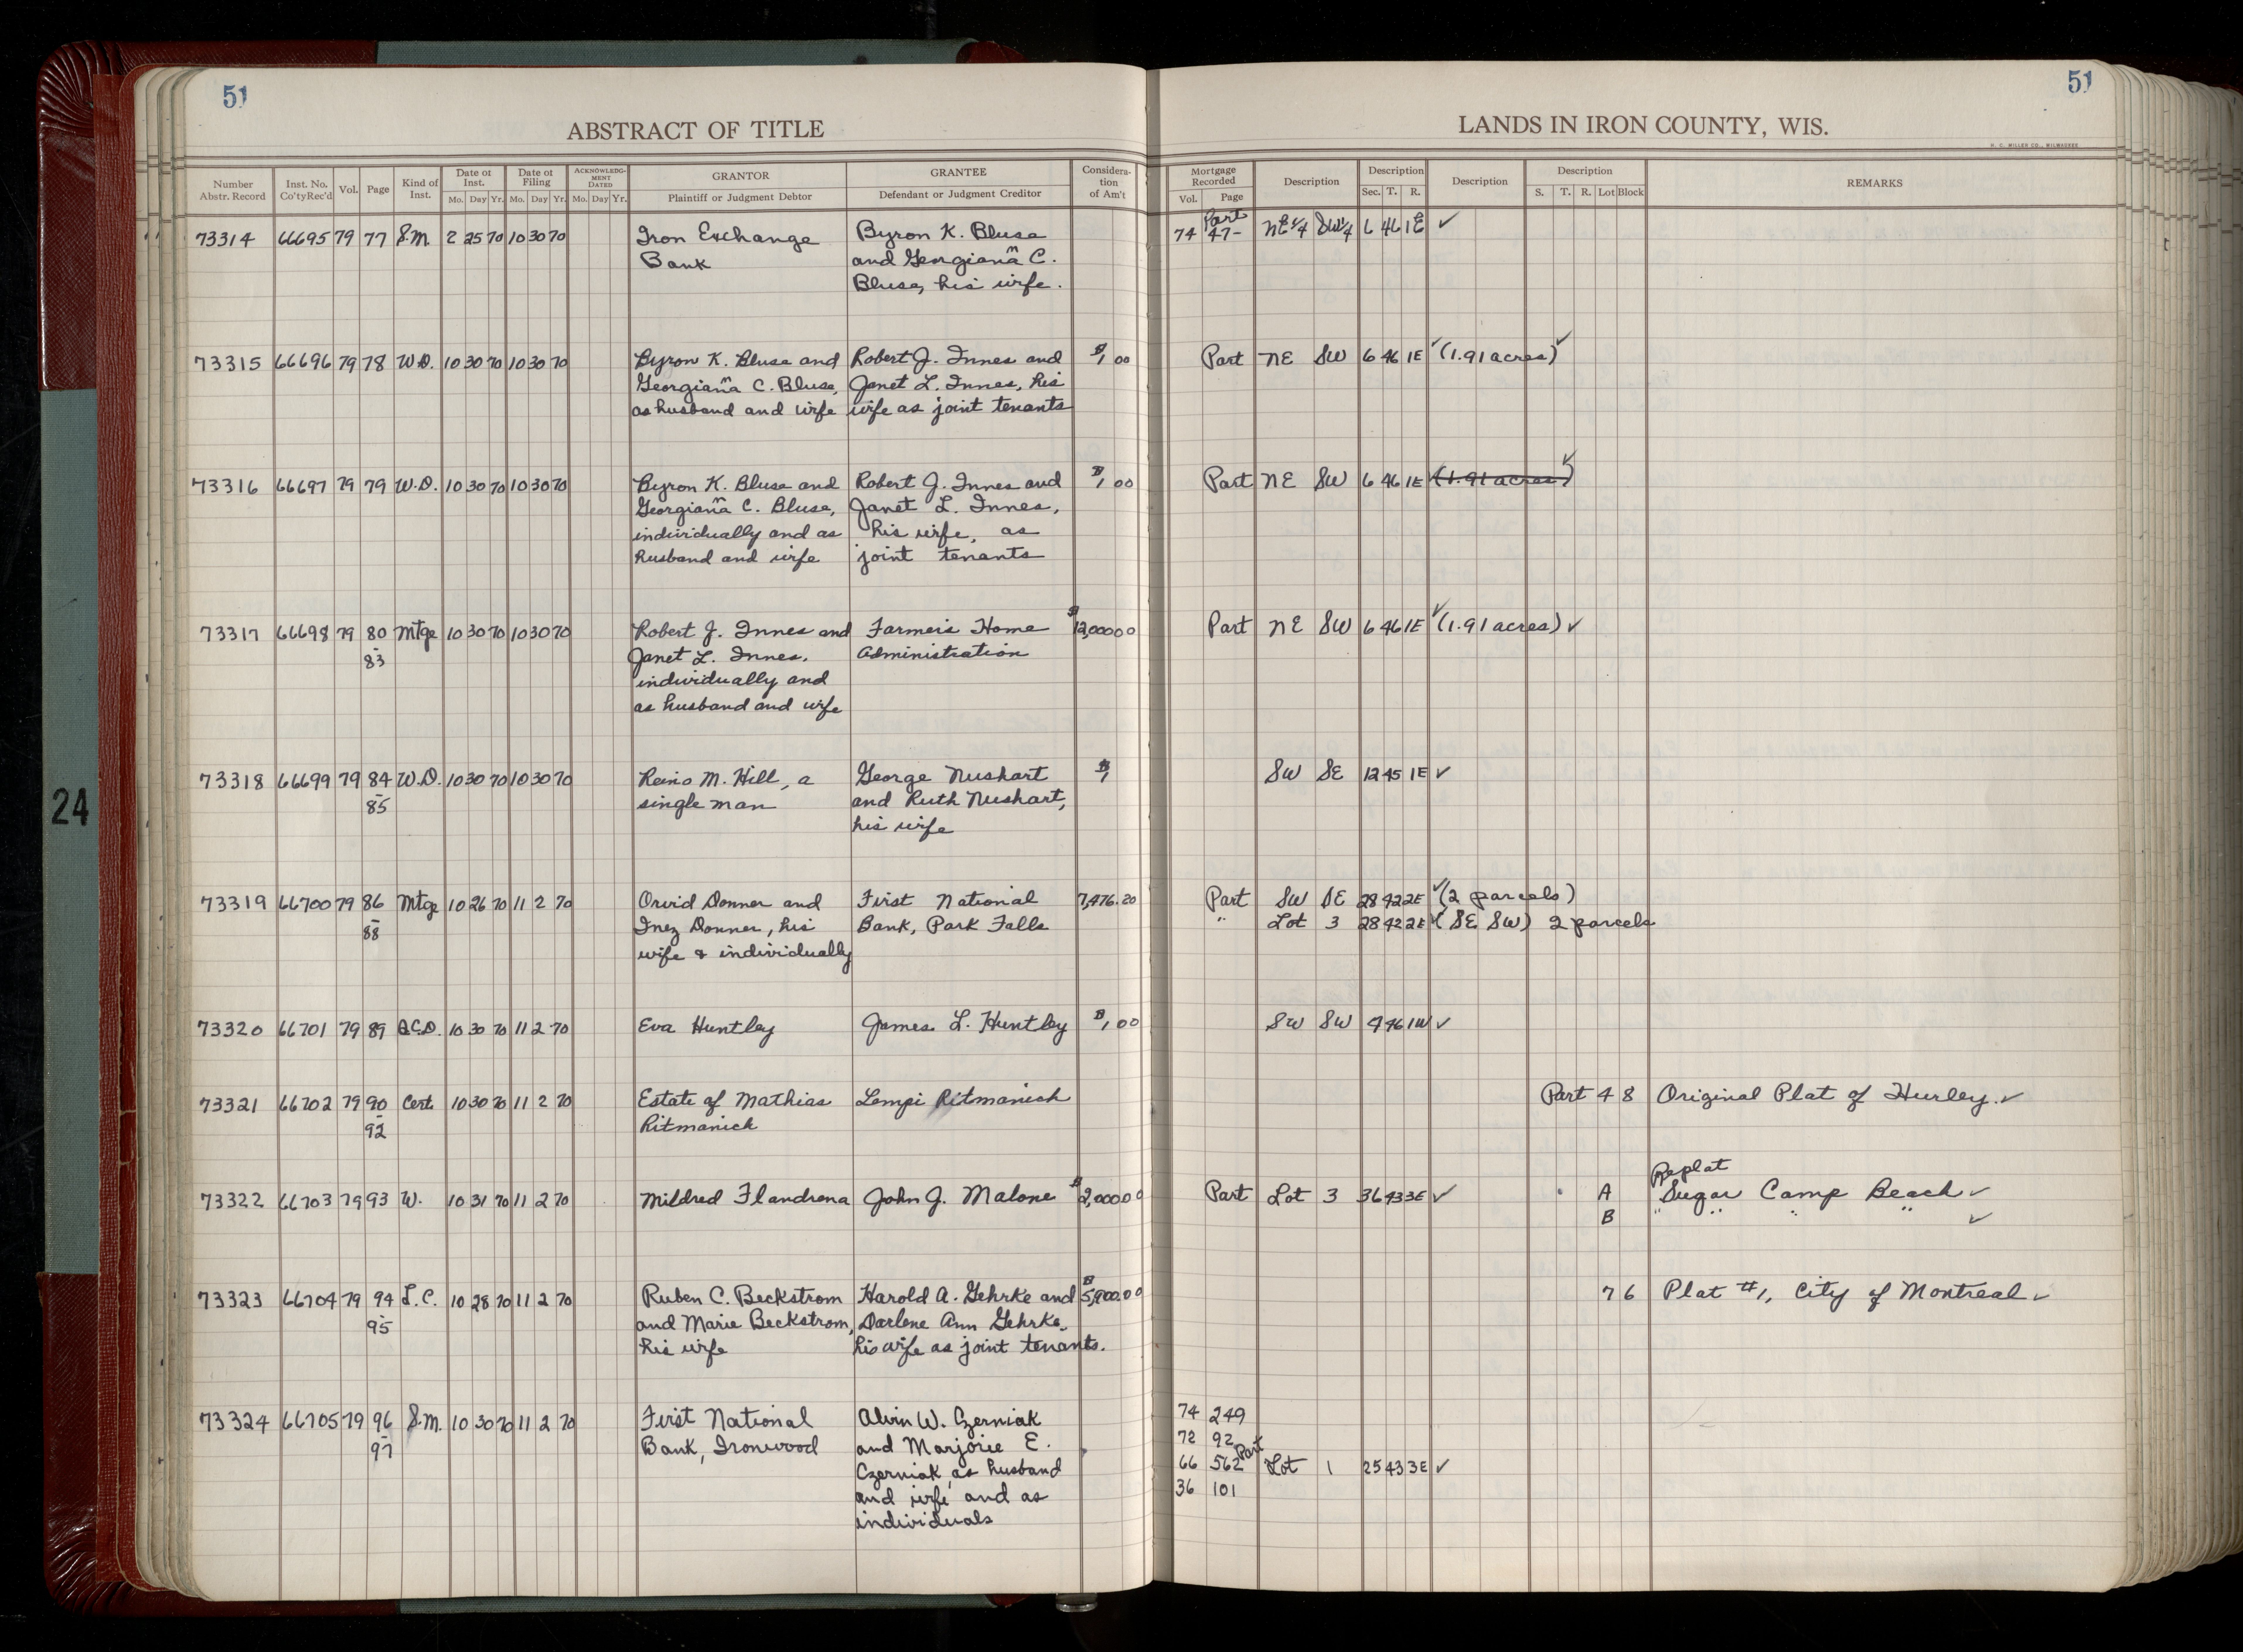 51
51
ABSTRACT OF TITLE
LANDS IN IRON COUNTY, WIS.
H. C. MILLER CO., MILWAUKEE
Number Abstr. Record | Inst. No. Co'ty Rec'd | Vol. | Page | Kind of Inst. | Date of Inst. Mo. Day Yr. | Date of Filing Mo. Day Yr. | ACKNOWLEDG-MENT DATED Mo. Day Yr. | GRANTOR Plaintiff or Judgment Debtor | GRANTEE Defendant or Judgment Creditor | Considera-tion of Am't | Mortgage Recorded Vol. Page | Description | Description Sec. T. R. | Description | Description S. T. R. Lot Block | REMARKS
Part
73314 66695 79 77 S.M. 2 25 70 10 30 70 Iron Exchange Byron K. Blusa 74 47- NE¼ SW¼ 6 46 1E ✓
Bank and Georgianna C.
Blusa, his wife.
73315 66696 79 78 W.D. 10 30 70 10 30 70 Byron K. Blusa and Robert J. Innes and $1 00 Part NE SW 6 46 1E ✓ (1.91 acres) ✓
Georgianna C. Blusa, Janet L. Innes, his
as husband and wife wife as joint tenants
73316 66697 79 79 W.D. 10 30 70 10 30 70 Byron K. Blusa and Robert J. Innes and $1 00 Part NE SW 6 46 1E (1.91 acres) ✓
Georgianna C. Blusa, Janet L. Innes,
individually and as his wife, as
husband and wife joint tenants
73317 66698 79 80 Mtge 10 30 70 10 30 70 Robert J. Innes and Farmers Home $12,000 00 Part NE SW 6 46 1E ✓ (1.91 acres) ✓
- 83 Janet L. Innes, Administration
individually and
as husband and wife
73318 66699 79 84 W.D. 10 30 70 10 30 70 Reino M. Hill, a George Nushart $1 SW SE 12 45 1E ✓
- 85 single man and Ruth Nushart,
his wife
73319 66700 79 86 Mtge 10 26 70 11 2 70 Orvid Donner and First National 7,476.20 Part SW SE 28 42 2E ✓ (2 parcels)
- 88 Inez Donner, his Bank, Park Falls " Lot 3 28 42 2E ✓ (SE SW) 2 parcels
wife & individually
73320 66701 79 89 Q.C.D. 10 30 70 11 2 70 Eva Huntley James L. Huntley $1 00 SW SW 4 46 1W ✓
73321 66702 79 90 Cert. 10 30 70 11 2 70 Estate of Mathias Lempi Ritmanich Part 4 8 Original Plat of Hurley. ✓
- 92 Ritmanich
Replat
73322 66703 79 93 W. 10 31 70 11 2 70 Mildred Flandrena John J. Malone $2,000 00 Part Lot 3 36 43 3E ✓ A Sugar Camp Beach ✓
B " " " " ✓
73323 66704 79 94 L.C. 10 28 70 11 2 70 Ruben C. Beckstrom Harold A. Gehrke and 7 6 Plat #1, City of Montreal ✓
- 95 and Marie Beckstrom, Darlene Ann Gehrke,
his wife his wife as joint tenants.
73324 66705 79 96 S.M. 10 30 70 11 2 70 First National Alvin W. Czerniak 74 249
- 97 Bank, Ironwood and Marjorie E. 72 92
Czerniak, as husband 66 562 Part Lot 1 25 43 3E ✓
and wife and as 36 101
individuals
24